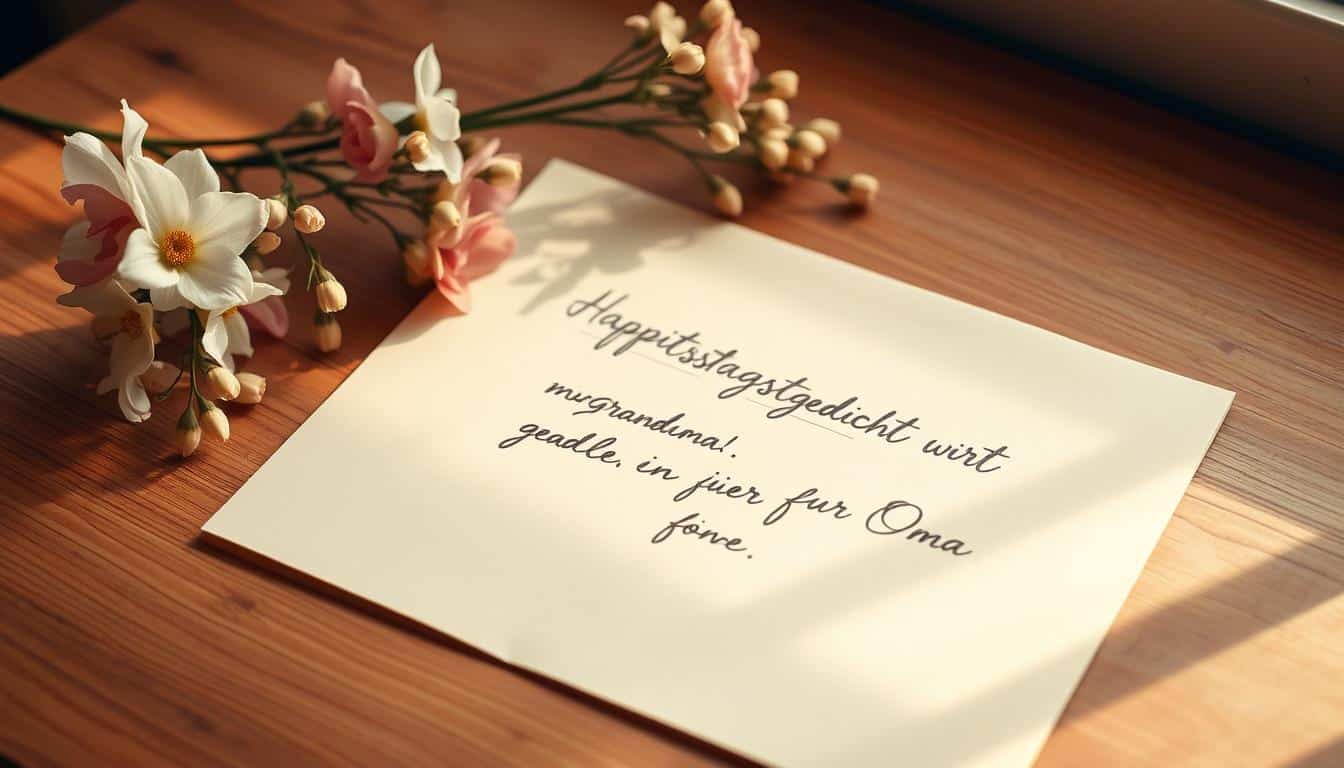 Happitsstagstgedicht wirt
mugrandma!.
geadle. in jüer fur Oma
fowe.